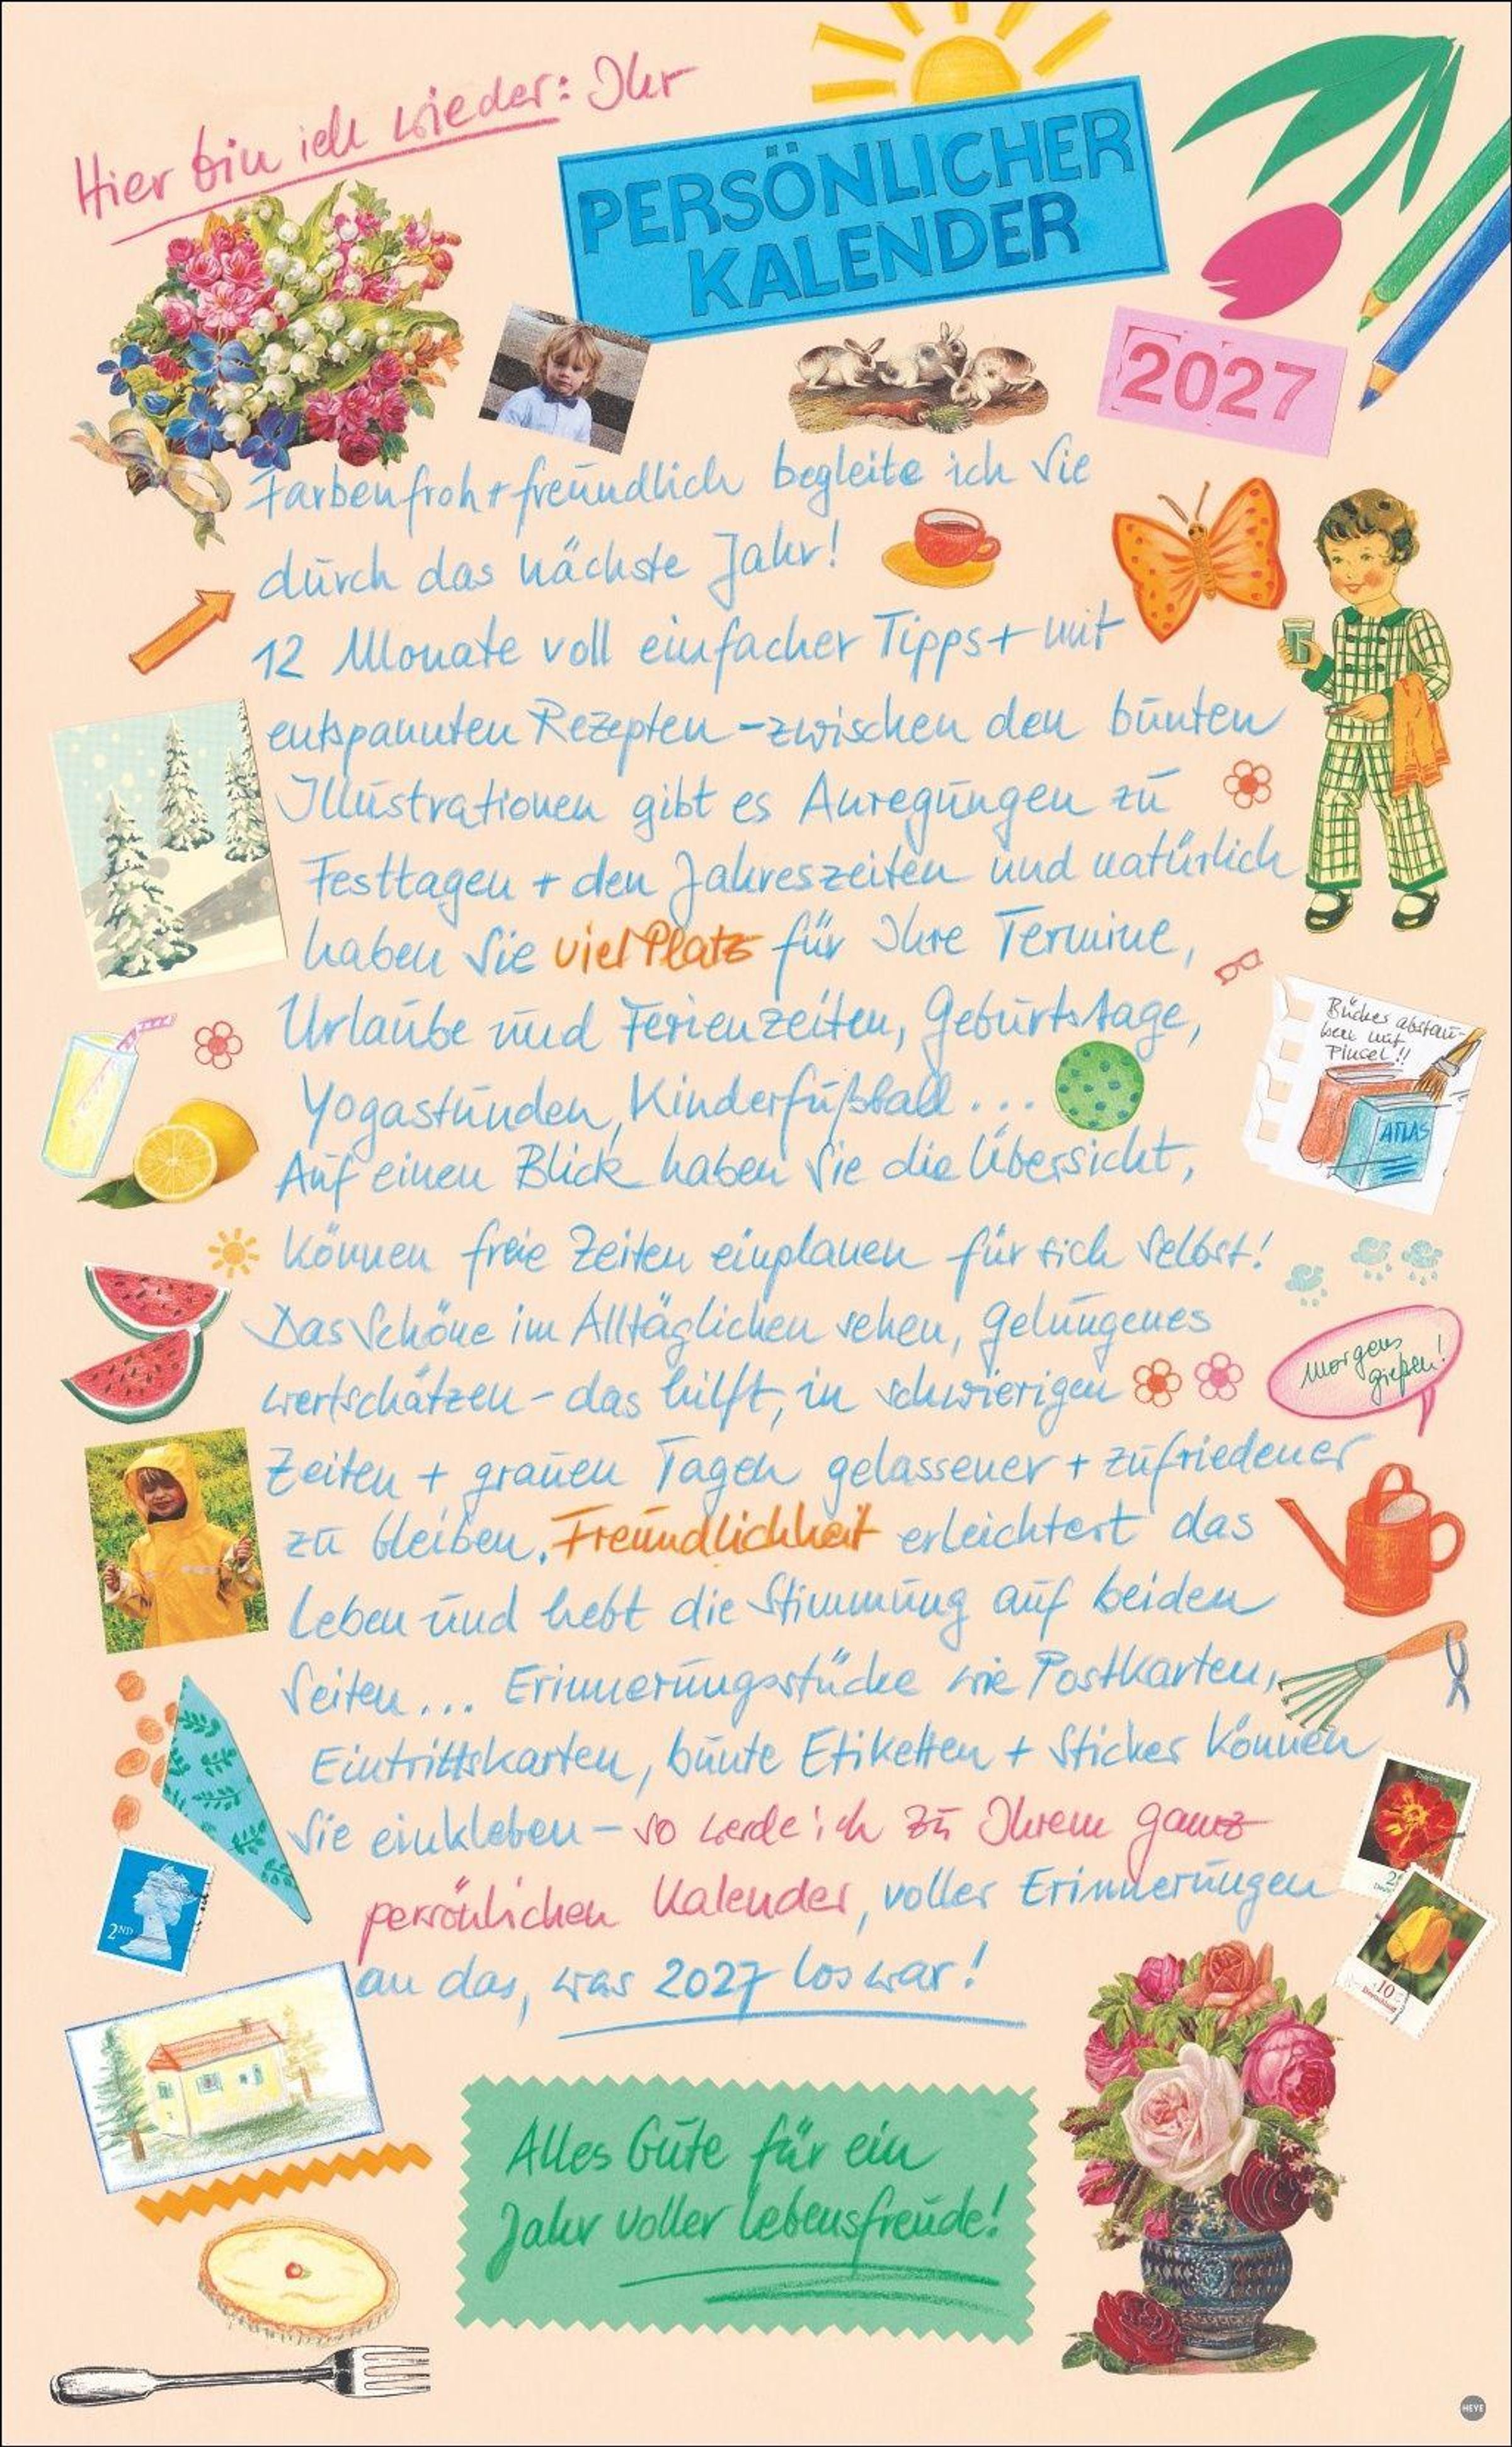 Hier bin ich wieder: Ihr
PERSÖNLICHER
KALENDER
2027
Farbenfroh + freundlich begleite ich Sie
durch das nächste Jahr!
12 Monate voll einfacher Tipps + mit
entspannten Rezepten - zwischen den bunten
Illustrationen gibt es Anregungen zu
Festtagen + den Jahreszeiten und natürlich
haben Sie viel Platz für Ihre Termine,
Urlaube und Ferienzeiten, Geburtstage,
Bücher abstau-
ben mit
Pinsel!!
ATLAS
Yogastunden, Kinderfußball...
Auf einen Blick haben Sie die Übersicht,
können freie Zeiten einplanen für sich selbst!
Das Schöne im Alltäglichen sehen, Gelungenes
wertschätzen - das hilft, in schwierigen
morgens
gießen!
Zeiten + grauen Tagen gelassener + zufriedener
zu bleiben. Freundlichkeit erleichtert das
Leben und hebt die Stimmung auf beiden
Seiten... Erinnerungsstücke wie Postkarten,
Eintrittskarten, bunte Etiketten + Sticker können
Sie einkleben - so werde ich zu Ihrem ganz
persönlichen Kalender, voller Erinnerungen
an das, was 2027 los war!
2ND
10
Deutschland
Alles Gute für ein
Jahr voller Lebensfreude!
HEYE